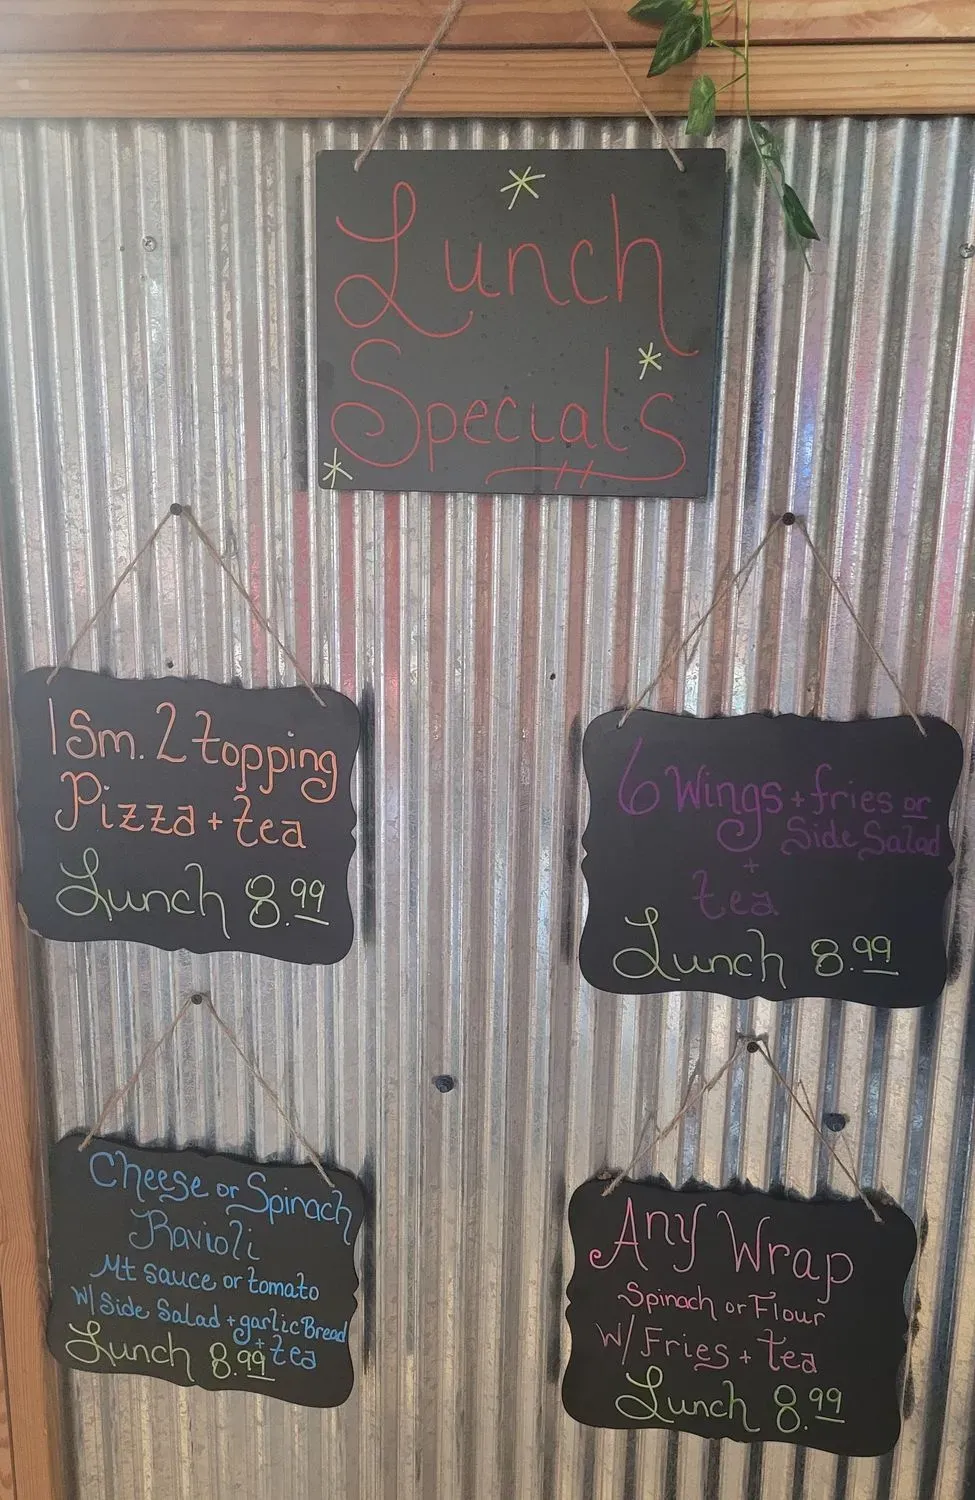 Lunch
Specials
1 Sm. 2 topping
Pizza + tea
Lunch 8.99
6 Wings + fries or
Side Salad
+
tea
Lunch 8.99
Cheese or Spinach
Ravioli
Mt sauce or tomato
W/ Side Salad + garlic Bread
+ tea
Lunch 8.99
Any Wrap
Spinach or Flour
W/ Fries + Tea
Lunch 8.99